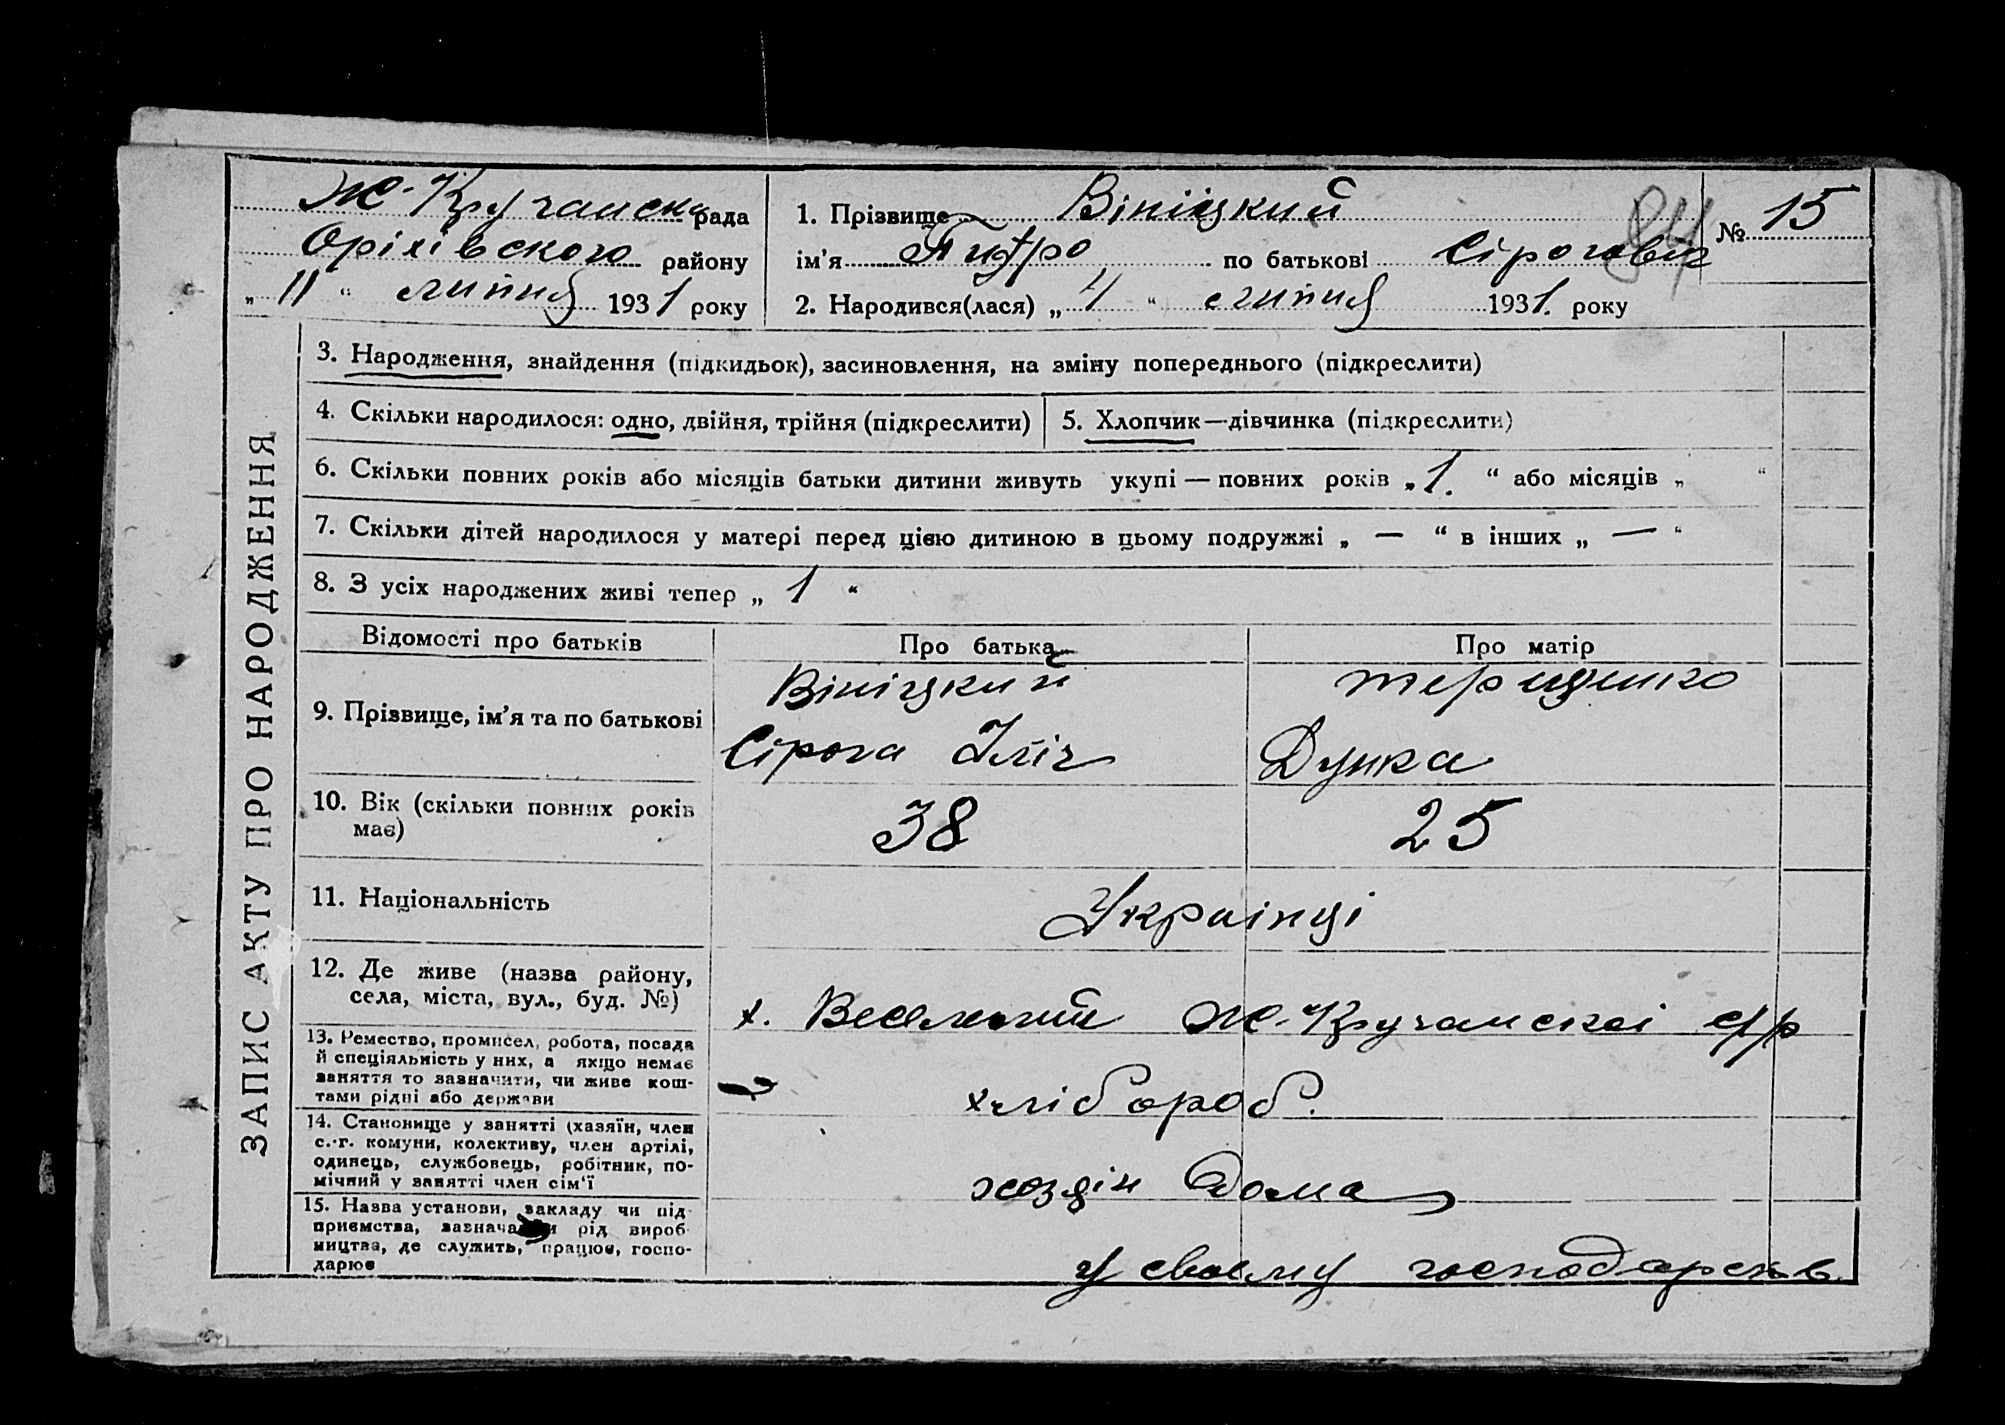 Ж-Кручанська рада
Оріхівського району
„ 11 “ липня 1931 року
1. Прізвище Вініцкий
ім’я по батькові Сірогович
№ 15
2. Народився(лася) „ 4 “ липня 1931. року
ЗАПИС АКТУ ПРО НАРОДЖЕННЯ
3. Народження, знайдення (підкидьок), засиновлення, на зміну попереднього (підкреслити)
4. Скільки народилося: одно, двійня, трійня (підкреслити)
5. Хлопчик—дівчинка (підкреслити)
6. Скільки повних років або місяців батьки дитини живуть укупі — повних років „ 1. “ або місяців „ “
7. Скільки дітей народилося у матері перед цією дитиною в цьому подружжі „ — “ в інших „ — “
8. З усіх народжених живі тепер „ 1 “
Відомості про батьків
Про батька
Про матір
9. Прізвище, ім’я та по батькові
Вініцкий
Сірога Ілїч
Терещенко
Дунка
10. Вік (скільки повних років
має)
38
25
11. Національність
Українці
12. Де живе (назва району,
села, міста, вул., буд. №)
х. Веселий Ж-Кручанскої с/р
13. Ремество, промисел, робота, посада
й спеціяльність у них, а якщо немає
заняття то зазначити, чи живе кош-
тами рідні або держави
хлібороб.
14. Становище у занятті (хазяїн, член
с.-г. комуни, колективу, член артілі,
одинець, службовець, робітник, по-
мічний у занятті член сім’ї
хозяін дома
15. Назва установи, закладу чи під-
приємства, зазначаючи рід вироб-
ництва, де служить, працює, госпо-
дарює
у своєму господарств.